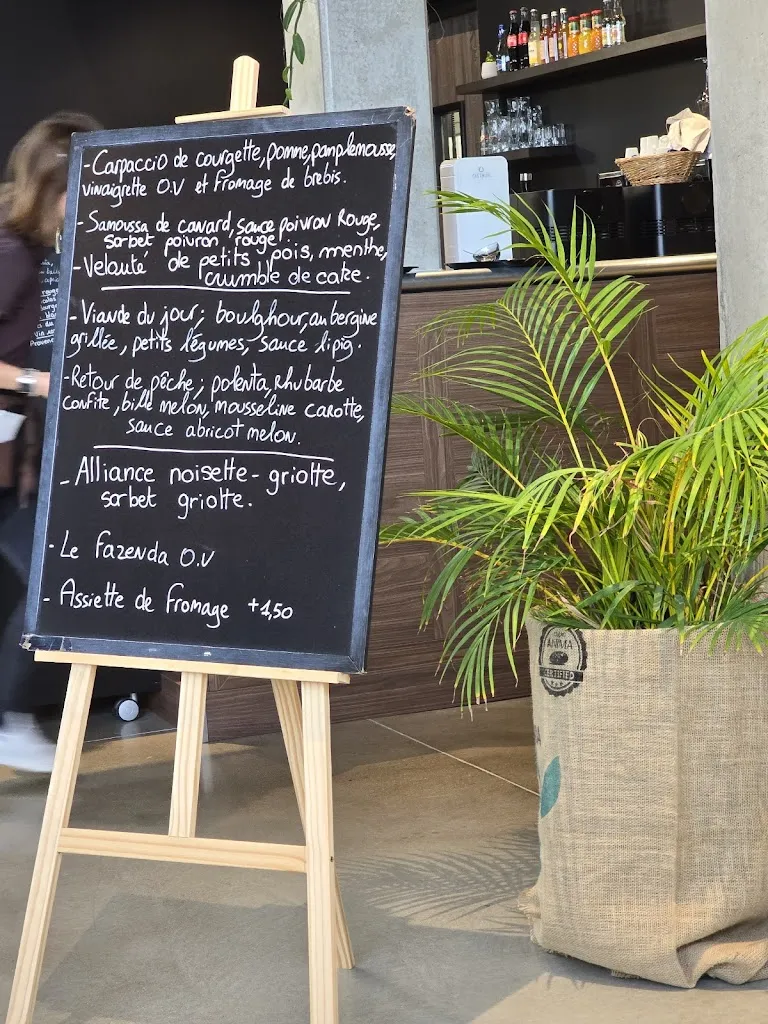 - Carpaccio de courgette, pomme, pamplemousse,
vinaigrette O.V et fromage de brebis.
- Samoussa de canard, sauce poivron Rouge,
sorbet poivron rouge.
- Velouté de petits pois, menthe,
crumble de cake.
- Viande du jour; boulghour, aubergine
grillée, petits légumes, sauce lipig.
- Retour de pêche; polenta, rhubarbe
confite, bille melon, mousseline carotte,
sauce abricot melon.
- Alliance noisette - griotte,
sorbet griotte.
- Le Fazenda O.V
- Assiette de fromage +1,50
CERTIFIED